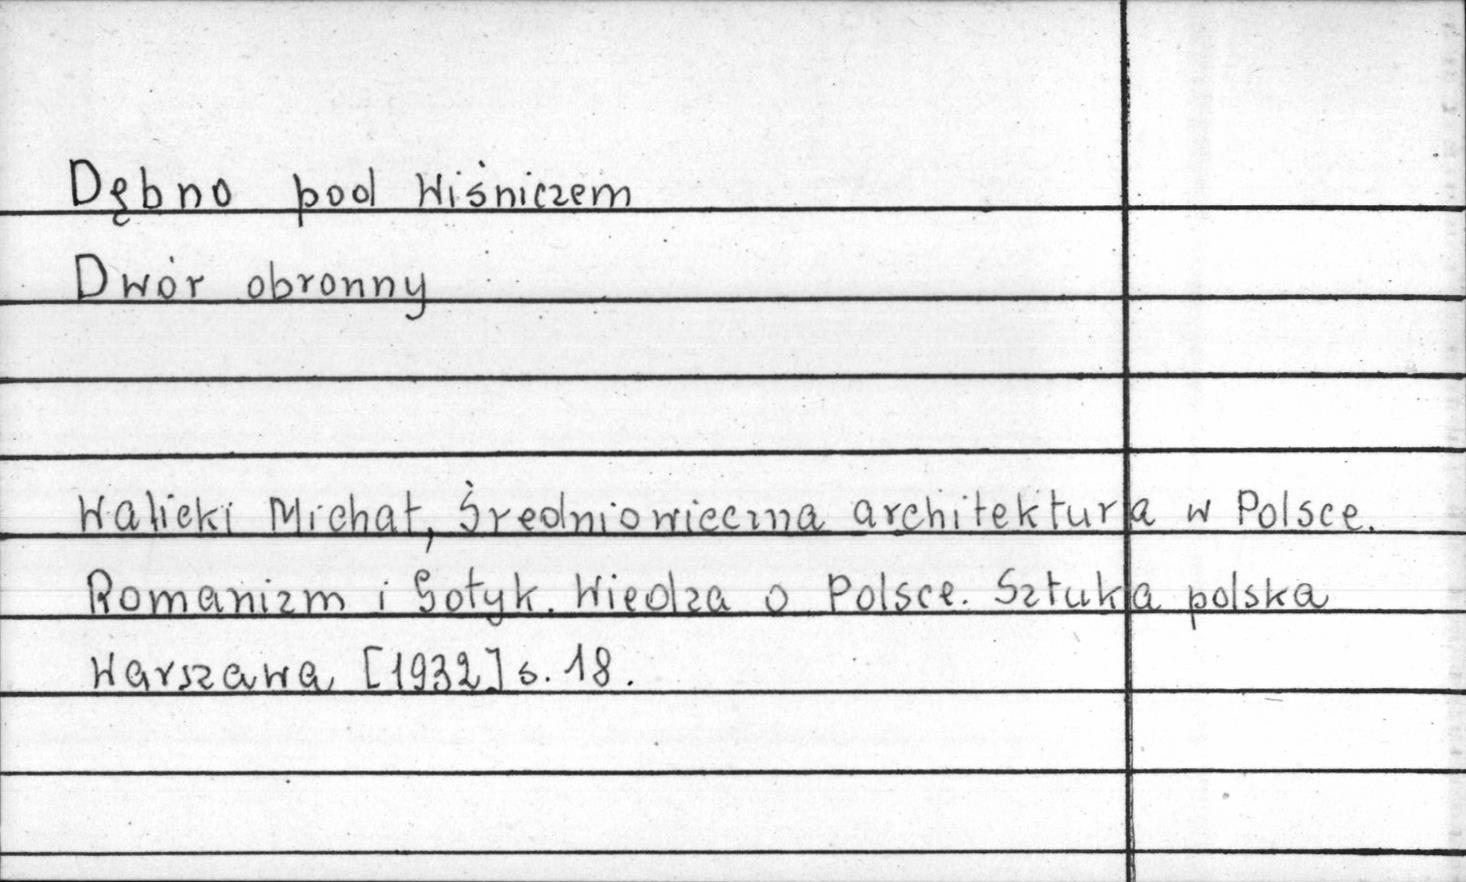 Dębno pod Wiśniczem
Dwór obronny
Walicki Michał, Średniowieczna architektura w Polsce.
Romanizm i Gotyk. Wiedza o Polsce. Sztuka polska
Warszawa [1932] s. 18.